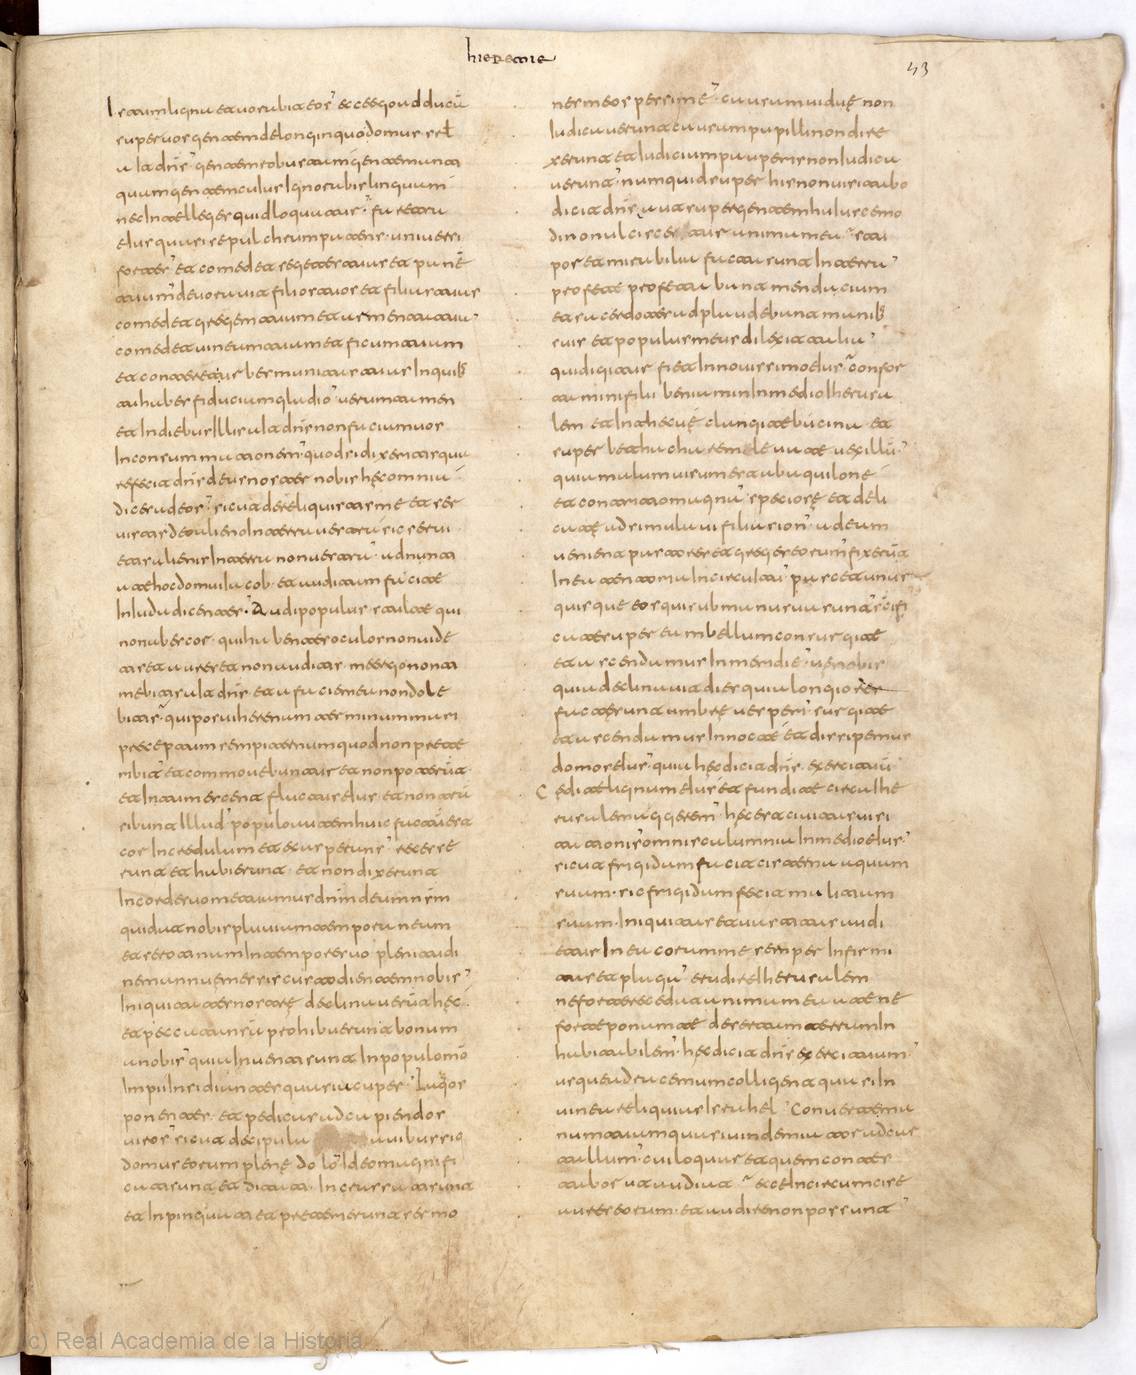 hieremie
43
Istum lignu et uorabit eos ecce ego adducā
super uos gentem de longinquo domus isrl
a la dns gentem robustam gentem anti
quam gentem cuius ignorabis linguam
nec intelleges quid loquatur faretra
eius quasi sepulchrum patens uniuersi
fortes et comedet segetes tuas et panē
tuum deuorabit filios tuos et filias tuas
comedet gregem tuum et armenta tua
comedet uineam tuam et ficum tuam
et conteret urbes munitas tuas in quib
tu habes fiduciam gladio uerumtamen
et in diebus illis ait dns non faciam uos
in consummationem quod si dixeritis quare
fecit dns deus noster nobis hec omnia
dices ad eos sicut dereliquistis me et ser
uistis deo alieno in terra uestra sic seruie
tis alienis in terra non uestra adnuntia
te hoc domui iacob et auditum facite
in iuda dicentes Audi popule stulte qui
non abes cor qui habentes oculos non uide
tis et aures et non auditis me ergo non ti
mebitis ait dns et a facie mea non dole
bitis qui posui harenam terminum mari
preceptum sempiternum quod non preteri
bit et commouebuntur et non poterunt
et intumescent fluctus eius et non transi
bunt illud populo autem huic factum est
cor incredulum et exasperans recesse
runt et abierunt et non dixerunt
in corde suo metuamus dnm deum nrm
qui dat nobis pluuiam temporaneam
et serotinam in tempore suo plenitudi
nem annue messis custodientem nobis
iniquitates uestre declinauerunt hec
et peccata uestra prohibuerunt bonum
a uobis quia inuenti sunt in populo meo
impii insidiantes quasi aucupes laqueos
ponentes et pedicas ad capiendos
uiros sicut decipula auibus sic
domus eorum plene dolo Ideo magnifi
cati sunt et ditati incrassati sunt
et inpinguati et preterierunt sermo
nes meos pessime causam uidue non
iudicauerunt causam pupilli non dire
xerunt et iudicium pauperis non iudica
uerunt numquid super his non uisitabo
dicit dns aut super gentem huiuscemo
di non ulciscetur anima mea stu
por et mirabilia facta sunt in terra
profete profetabant mendacium
et sacerdotes adplaudebant manib
suis et populus meus dilexit talia
quid igitur fiet in nouissimo eius confor
tamini filii beniamin in medio iherusa
lem et in thecue clangite bucina et
super bethacharem leuate uexillū
quia malum uisum est ab aquilone
et contritio magna speciose et deli
cate adsimilaui filiam sion ad eam
uenient pastores et greges eorum fixerunt
in ea tentoria in circuitu pascet unus
quisque eos qui sub manu sua sunt scifi
cate super eam bellum consurgite
et ascendamus in meridie ue nobis
quia declinauit dies quia longiores
facte sunt umbre uesperi surgite
et ascendamus in nocte et dissipemus
domos eius quia hec dicit dns exercituū
Cedite lignum eius et fundite circa ihe
rusalem aggerem hec est ciuitas uisi
tationis omnis calumnia in medio eius
sicut frigidam facit cisterna aquam
suam sic frigidam fecit malitiam
suam iniquitas et uastitas audi
etur In ea coram me semper infirmi
tas et plaga erudire iherusalem
ne forte recedat anima mea a te ne
forte ponam te desertam terram in
habitabilem hec dicit dns exercituum
usque ad racemum colligent quasi in
uinea reliquias israhel Conuerte ma
num tuam quasi uindemiator ad car
tallum cui loquar et quem conte
stabor ut audiat ecce incircumcise
aures eorum et audire non possunt